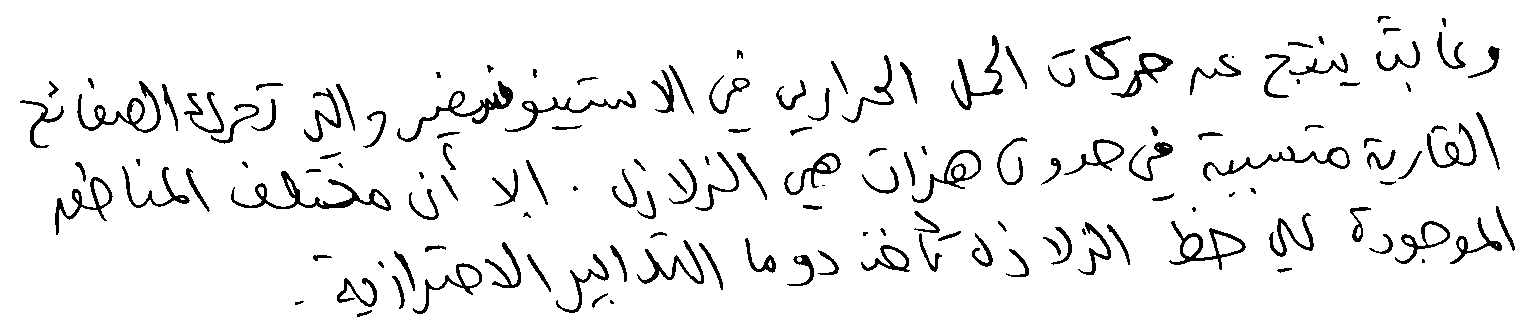 وغالبا ينتج عن حركات الحمل الحراري في الاستينوسفير والتي تحرك الصفائح
القارية متسببة في حدوث هزات هي الزلازل. إلا أن مختلف المناطق
الموجودة على خط الزلازل تأخذ دوما التدابير الاحترازية.